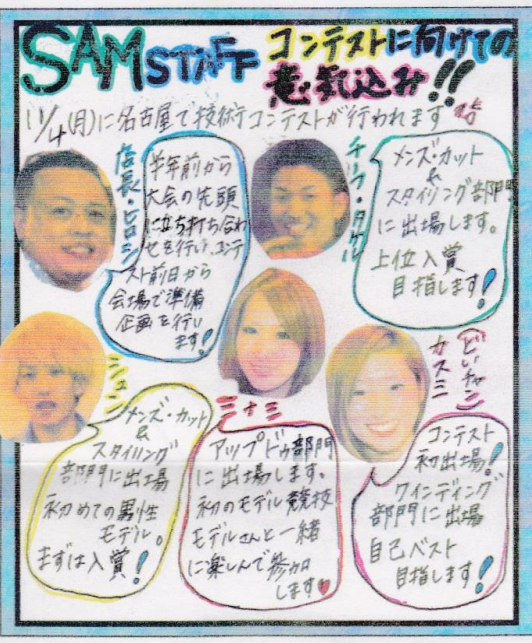 SAM STAFF コンテストに向けての
意気込み!!
11/4(月)に名古屋で技術コンテストが行われます
店長・ヒロシ
半年前から
大会の先頭
に立ち打ち合わ
せを行い、コンテ
スト前日から
会場で準備
企画を行い
ます!
チーフ・タケル
メンズ・カット
&
スタイリング部門
に出場します。
上位入賞
目指します!
シュン
メンズ・カット
&
スタイリング
部門に出場
初めての男性
モデル。
まずは入賞!
ミナミ
アップドゥ部門
に出場します。
初のモデル競技
モデルさんと一緒
に楽しんで参加
します
(どいチャン)
カスミ
コンテスト
初出場!
ワインディング
部門に出場
自己ベスト
目指します!